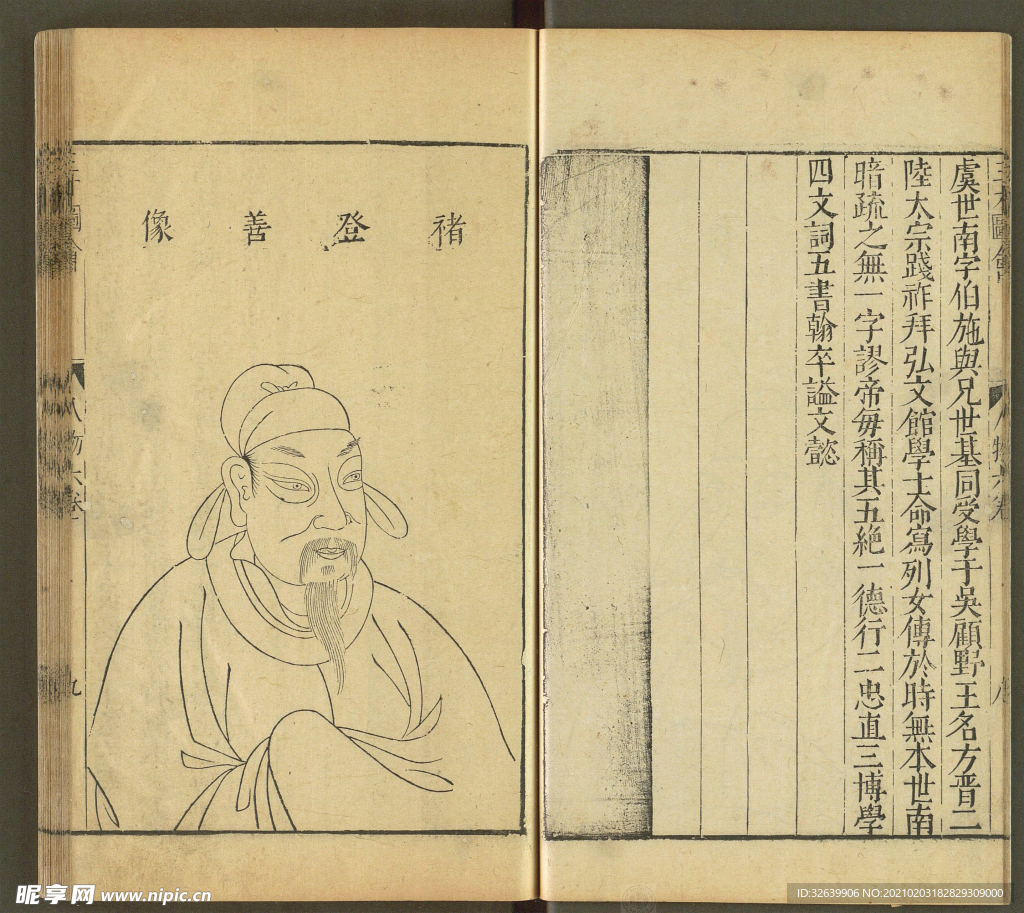 三才圖會
人物六卷
八
虞世南字伯施與兄世基同受學于吳顧野王名方晋二
陸太宗踐祚拜弘文館學士命寫列女傳於時無本世南
暗疏之無一字謬帝每稱其五絶一德行二忠直三博學
四文詞五書翰卒謚文懿
褚登善像
人物六卷
九
昵享网 www.nipic.cn
ID:32639906 NO:20210203182829309000